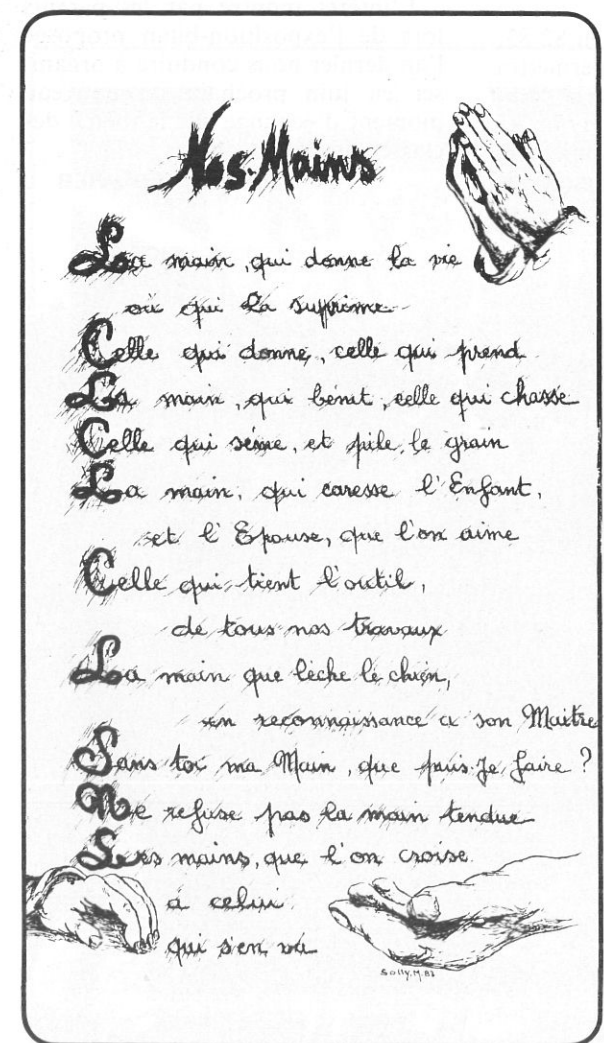 Nos Mains
La main, qui donne la vie
ou qui la supprime
Celle qui donne, celle qui prend
La main, qui bénit, celle qui chasse
Celle qui sème, et pile, le grain
La main, qui caresse l'Enfant,
et l'Epouse, que l'on aime
Celle qui tient l'outil,
de tous nos travaux
La main que lèche le chien,
en reconnaissance a son Maitre
Sans toi ma Main, que puis-Je faire ?
Ne refuse pas la main tendue
Les mains, que l'on croise
a celui
qui s'en va
Solly.M.83